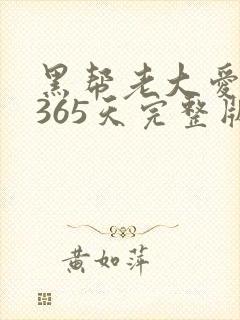 黑帮老大爱
365天完整版
黄如萍